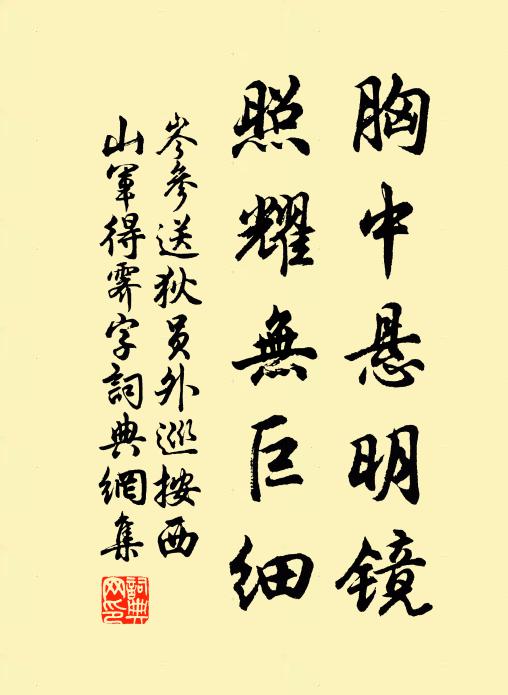 胸中悬明镜
照耀無巨细
岑參送狄员外巡按西
山軍得霽字詞典網集
詞典网印